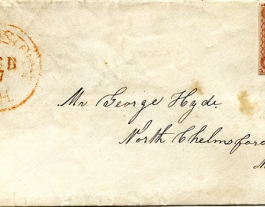 B
7
Mr George Hyde.
North Chelmsford
M